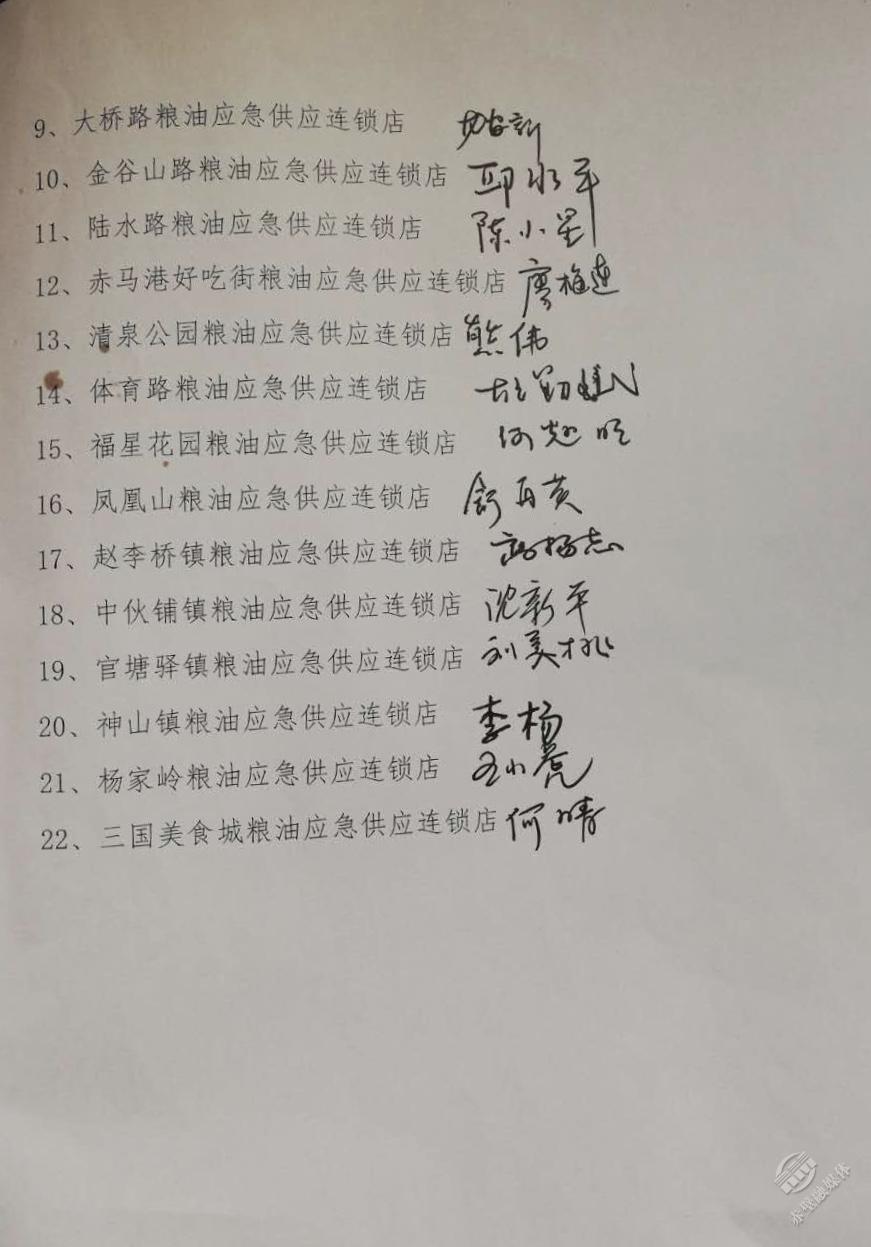 9、大桥路粮油应急供应连锁店
10、金谷山路粮油应急供应连锁店 邱水平
11、陆水路粮油应急供应连锁店 陈小星
12、赤马港好吃街粮油应急供应连锁店 廖梅莲
13、清泉公园粮油应急供应连锁店 熊伟
14、体育路粮油应急供应连锁店
15、福星花园粮油应急供应连锁店
16、凤凰山粮油应急供应连锁店
17、赵李桥镇粮油应急供应连锁店
18、中伙铺镇粮油应急供应连锁店 沈新平
19、官塘驿镇粮油应急供应连锁店 刘美桃
20、神山镇粮油应急供应连锁店 李杨
21、杨家岭粮油应急供应连锁店 王小虎
22、三国美食城粮油应急供应连锁店 何晴
赤壁融媒体